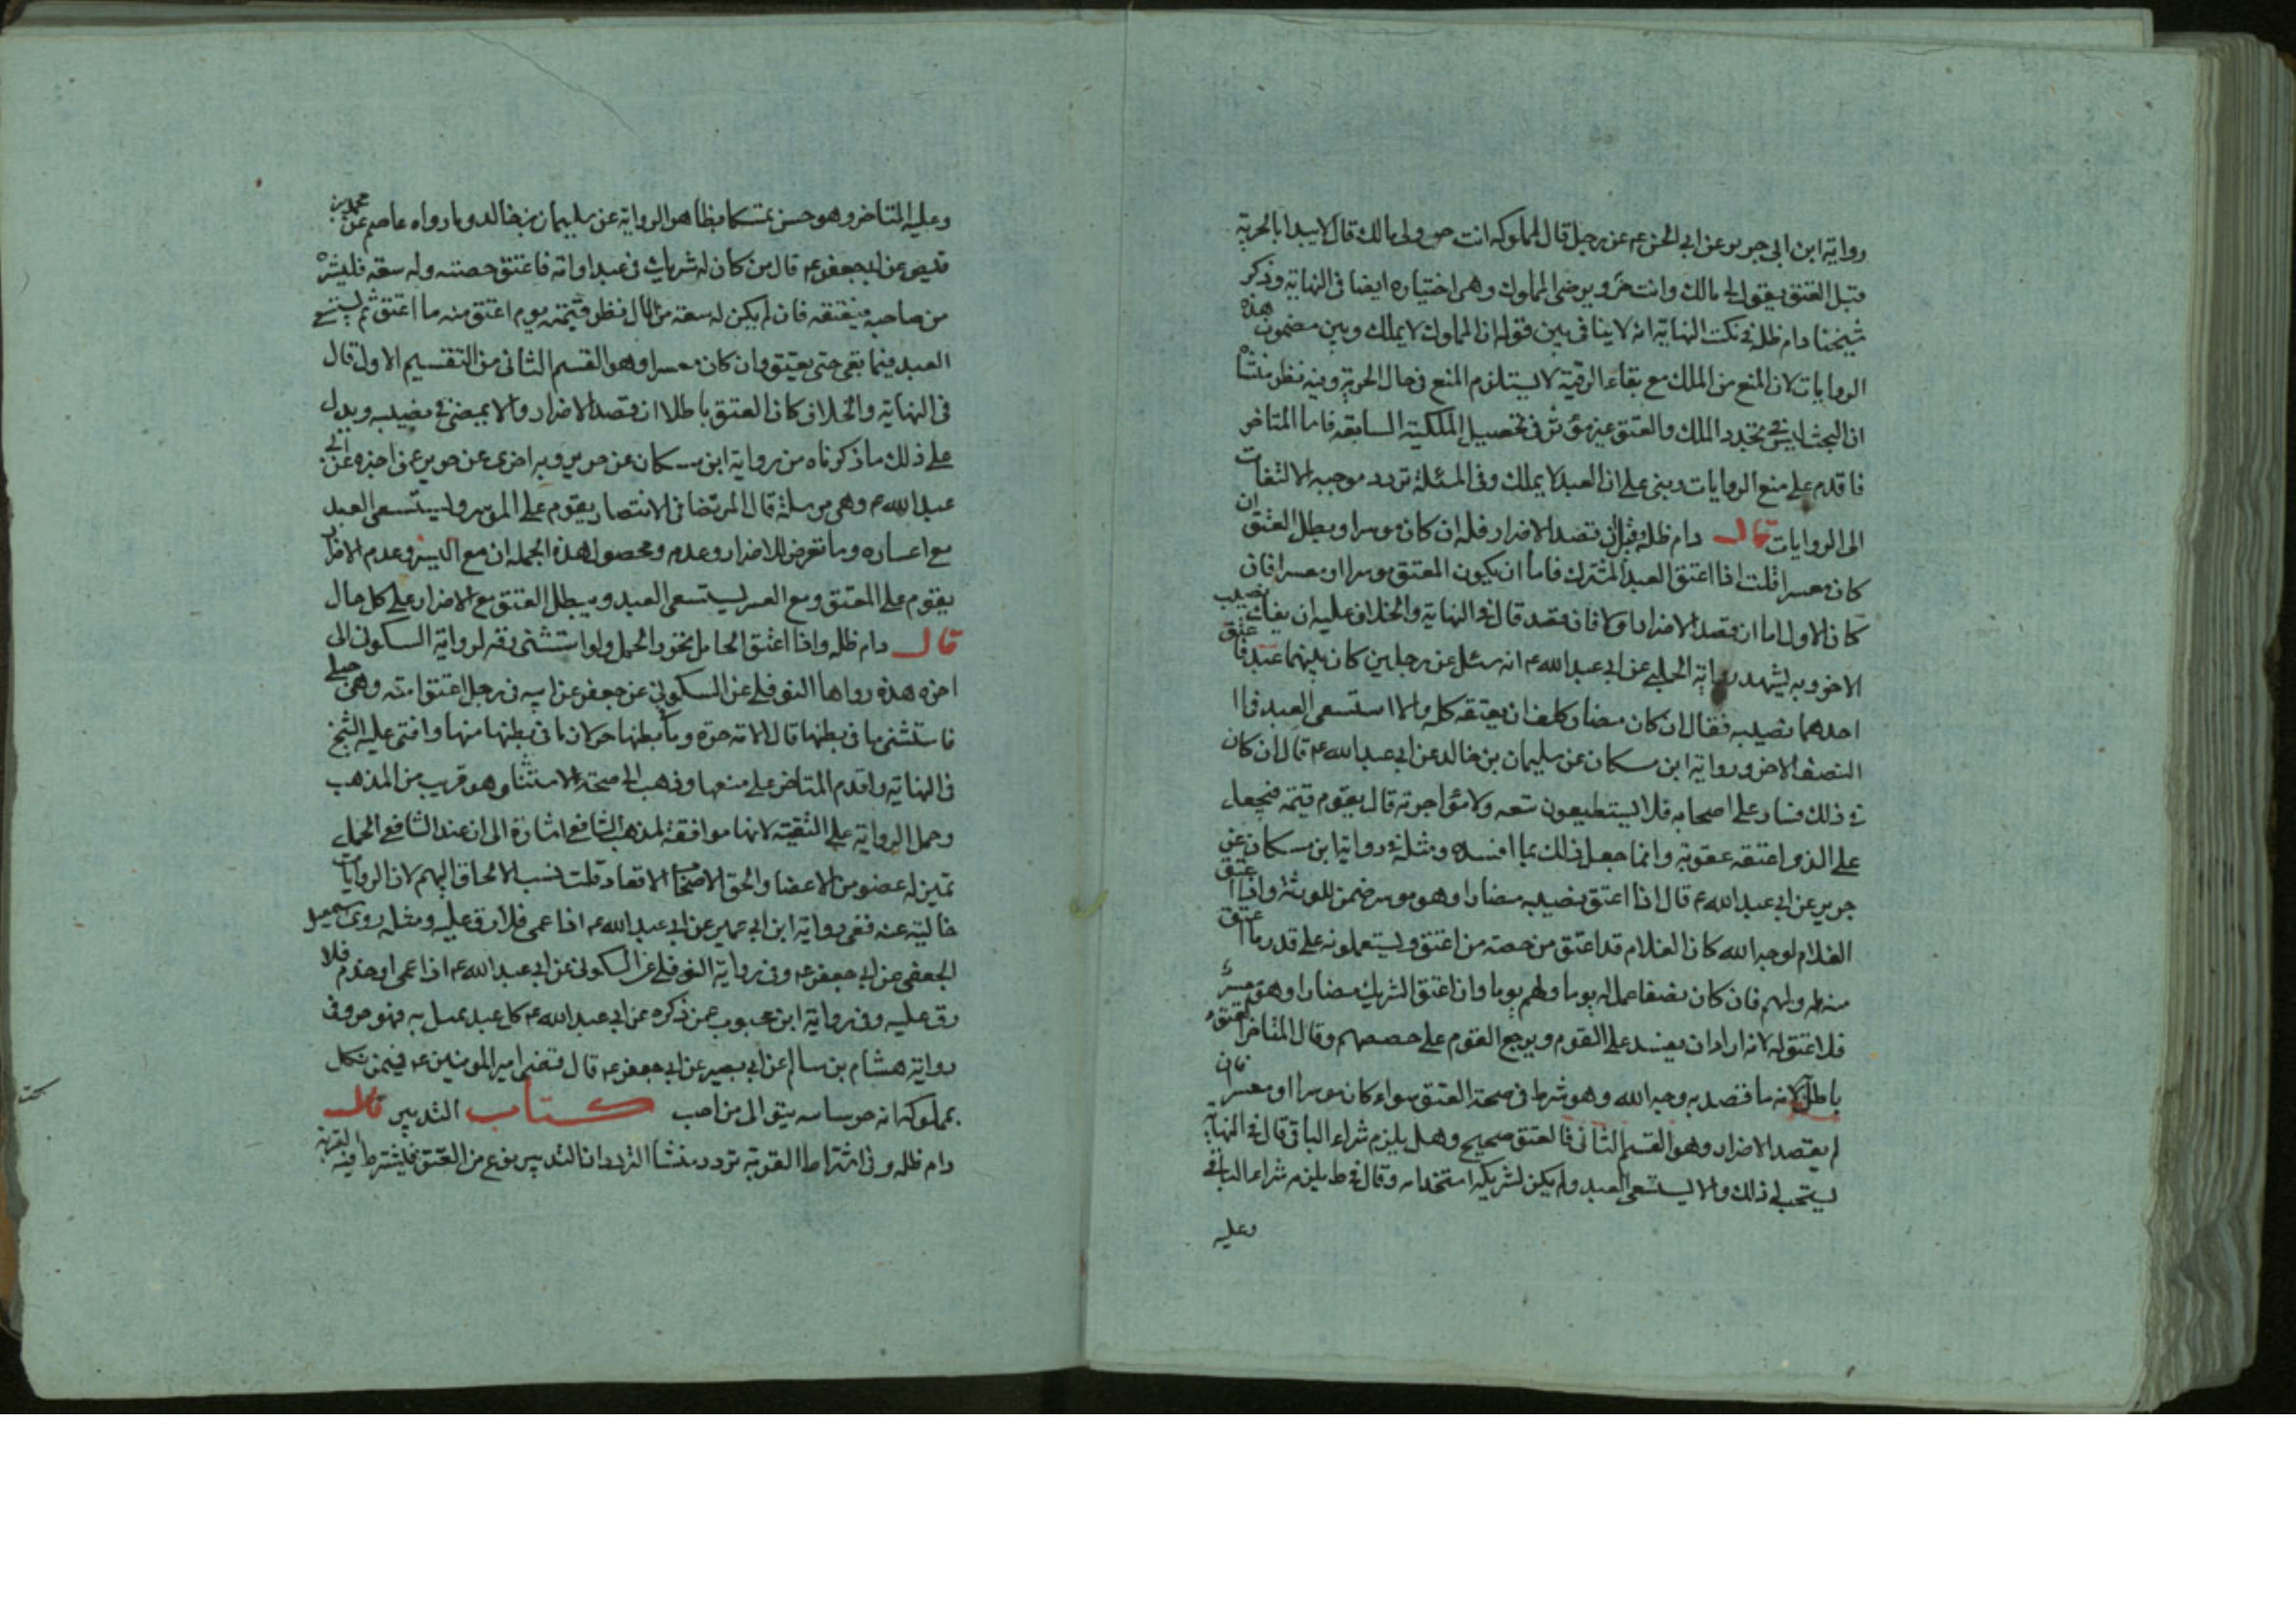 رواية ابن ابي جرير عن ابي الحسن ع عن رجل قال لمملوكه انت حر ولى مالك قال لا يبدا بالحرية
قبل العتق يقول لى مالك وانت حر ويرضى المملوك وهى اختياره ايضا فى النهاية وذكر
شيخنا دام ظله فى نكت النهاية انه لا ينافى بين قوله ان المملوك لا يملك وبين مضمون هذه
الروايات لان المنع من الملك مع بقاء الرقية لا يستلزم المنع فى حال الحرية وفيه نظر منشأه
ان البحث ليس فى تجدد الملك والعتق غير مؤثر فى تحصيل الملكية السابقه فاما المتاخر
فاقدم على منع الروايات وبنى على ان العبد لا يملك وفى المسئلة تردد موجبه الالتفات
الى الروايات قال دام ظله وقيل ان قصد الاضرار فله ان كان موسرا وبطل العتق ان
كان معسرا قلت اذا اعتق العبد المشترك فاما ان يكون المعتق موسرا او معسرا فان
كان الاول اما ان قصد الاضرار او لا فان قصد قال فى النهاية والخلاف عليه ان يفك نصيب
الاخر وبه يشهد رواية الحلبى عن ابى عبد الله ع انه سئل عن رجلين كان بينهما عبد فاعتق
احدهما نصيبه فقال ان كان مضارا كلف ان يعتقه كله والا استسعى العبد فى
النصف الاخر ورواية ابن مسكان عن سليمان بن خالد عن ابى عبد الله ع قال ان كان
فى ذلك فساد على اصحابه فلا يستطيعون بيعه ولا مؤاجرته قال يقوم قيمة فيجعل
على الذى اعتقه عقوبة وانما جعل ذلك لما افسده ومثله فى رواية ابن مسكان عن
حريز عن ابى عبد الله ع قال اذا اعتق نصيبه مضارا وهو موسر ضمن للورثة واذا اعتق
الغلام لوجه الله كان الغلام قد اعتق من حصته من اعتق ويستعملونه على قدر ما اعتق
منه له ولهم فان كان نصفا عمل له يوما ولهم يوما وان اعتق الشريك مضارا وهو معسر
فلا عتق له لانه اراد ان يفسد على القوم ويرجع القوم على حصصهم وقال المتاخر العتق
باطل لانه ما قصد به وجه الله وهو شرط فى صحة العتق سواء كان موسرا او معسرا فان
لم يقصد الاضرار وهو القسم الثانى فالعتق صحيح وهل يلزم شراء الباقى قال فى النهاية
يستحب له ذلك والا يستسعى العبد ولم يكن لشريكه استخدامه وقال فى ط يلزم شراء الباقى
وعليه
وعليه المتاخر وهو حسن تمسكا بظاهر الرواية عن سليمان بن خالد وما رواه عاصم عن محمد بن
قيس عن ابى جعفر ع قال من كان له شريك فى عبد او امة فاعتق حصته وله سعة فليشتره
من صاحبه فيعتقه فان لم يكن له سعة من المال نظر قيمته يوم اعتق منه ما اعتق ثم يستسعى
العبد فيما بقى حتى يعتق وان كان معسرا وهو القسم الثانى من التقسيم الاول قال
فى النهاية والخلاف كان العتق باطلا ان قصد الاضرار والا يمضى فى نصيبه ويدل
على ذلك ما ذكرناه من رواية ابن مسكان عن حريز وبه اخرى عن حريز عن اخبره عن ابى
عبد الله ع وهى مرسلة قال المرتضى فى الانتصار يقوم على الموسر ويستسعى العبد
مع اعساره وما تعرض للاضرار وعدمه ومحصول هذه الجمله ان مع اليسر وعدم الاضرار
يقوم على المعتق ومع العسر يستسعى العبد ويبطل العتق مع الاضرار على كل حال
قال دام ظله واذا اعتق الحامل تحرر الحمل ولو استثنى رقه لرواية السكونى الى
اخره هذه رواها النوفلى عن السكونى عن جعفر عن ابيه فى رجل اعتق امته وهى حبلى
فاستثنى ما فى بطنها قال الامة حرة وما فى بطنها حر لان ما فى بطنها منها وافتى عليه الشيخ
فى النهاية واقدم المتاخر على منعها وذهب الى صحة الاستثناء وهو قريب من المذهب
وحمل الرواية على التقية لانها موافقة لمذهب الشافعى اشارة الى ان عند الشافعى الحمل
تمين له عضو من الاعضاء والحق الاصحاب الاقعاد قلت نسب الالحاق اليهم لان الروايات
خالية عنه ففى رواية ابن ابى عمير عن ابى عبد الله ع اذا عمى فلا رق عليه ومثله روى اسمعيل
الجعفى عن ابى جعفر ع وفى رواية النوفلى عن السكونى عن ابى عبد الله ع اذا عمى او جذم فلا
رق عليه وفى رواية ابن محبوب عمن ذكره عن ابى عبد الله ع كل عبد مثل به فهو حر وفى
رواية هشام بن سالم عن ابى بصير عن ابى جعفر ع قال قضى امير المومنين ع فيمن نكل
بمملوكه انه حر سايبه يتوالى من احب كتاب التدبير قال
دام ظله وفى اشتراط القربة تردد منشأ التردد ان التدبير نوع من العتق فيشترط فيه القربة